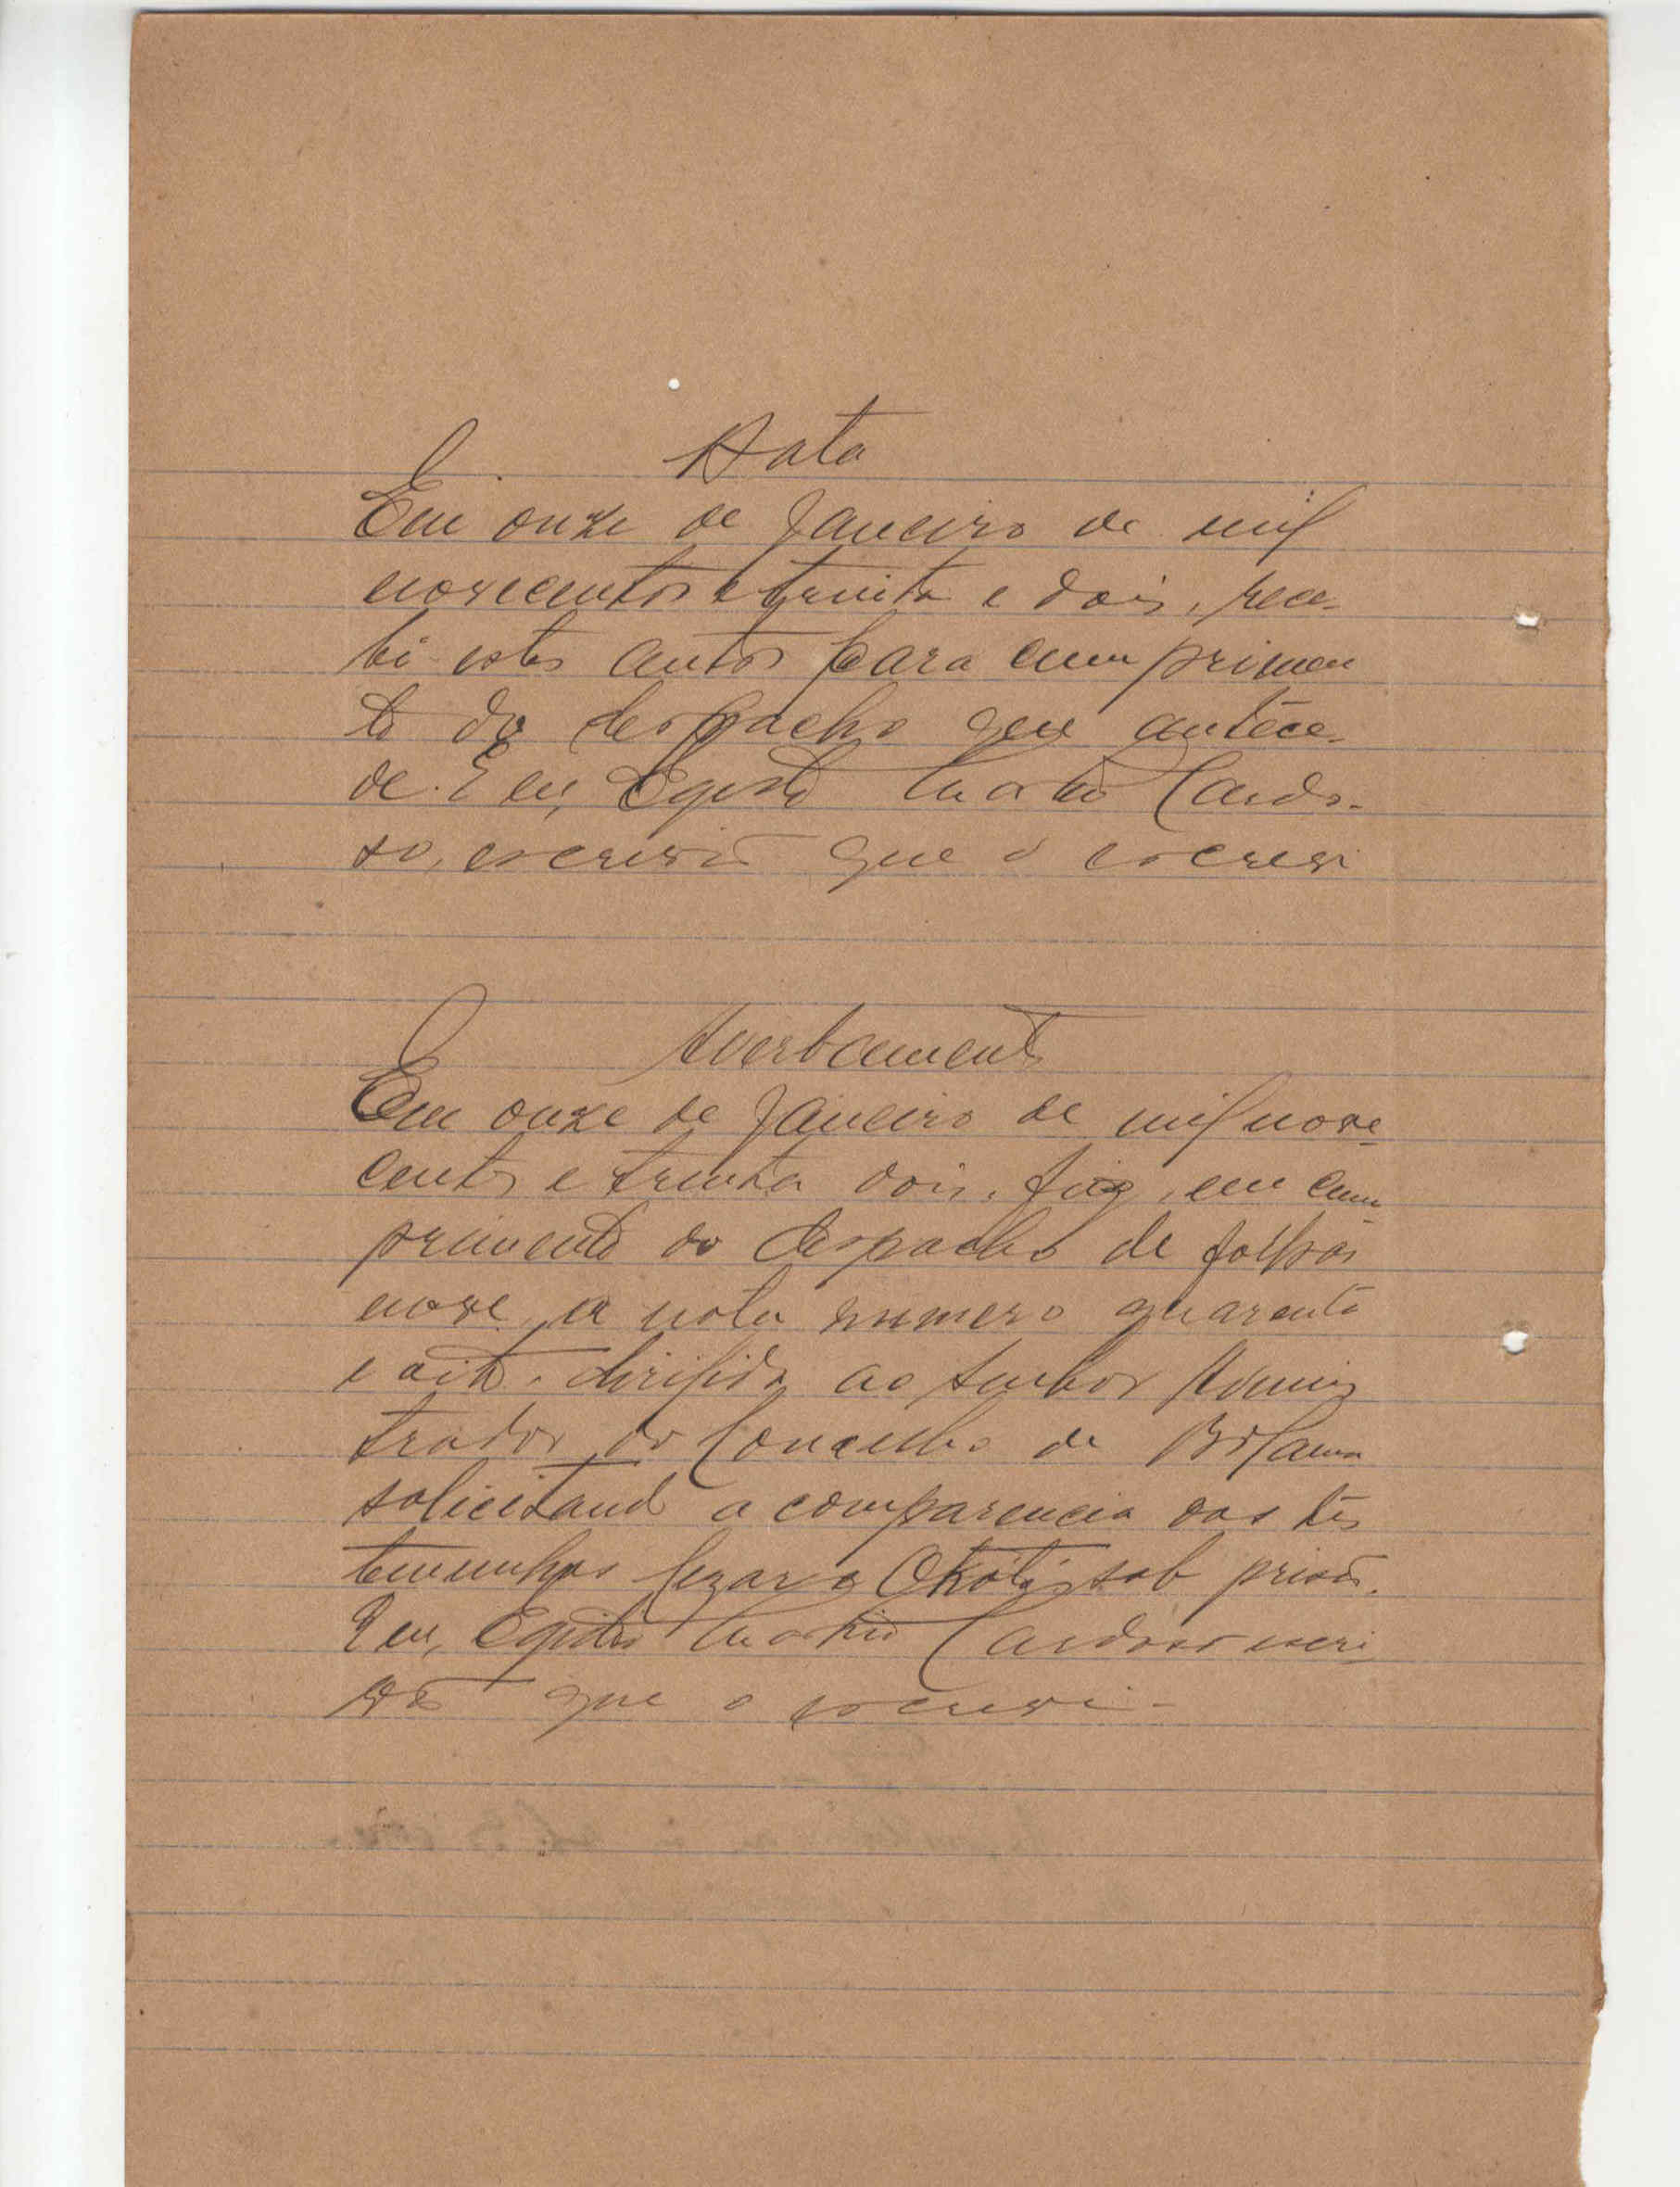 Data
Em onze de Janeiro de mil
novecentos e trinta e dois, rece-
bi estes autos para cumprimen
to do despacho que antece-
de. E eu, Egidio Cardo-
so, escrivão que o escrevi
Averbamento
Em onze de Janeiro de mil nove
centos e trinta dois, fiz, em cum
primento do despacho de folhas
nove, a nota numero quarenta
e oito, dirigida ao senhor Admins
trador do Concelho de Bolama
solicitando a comparencia das tes
temunhas sob prisão.
E eu, Egidio Cardoso escri
vão que o escrevi-